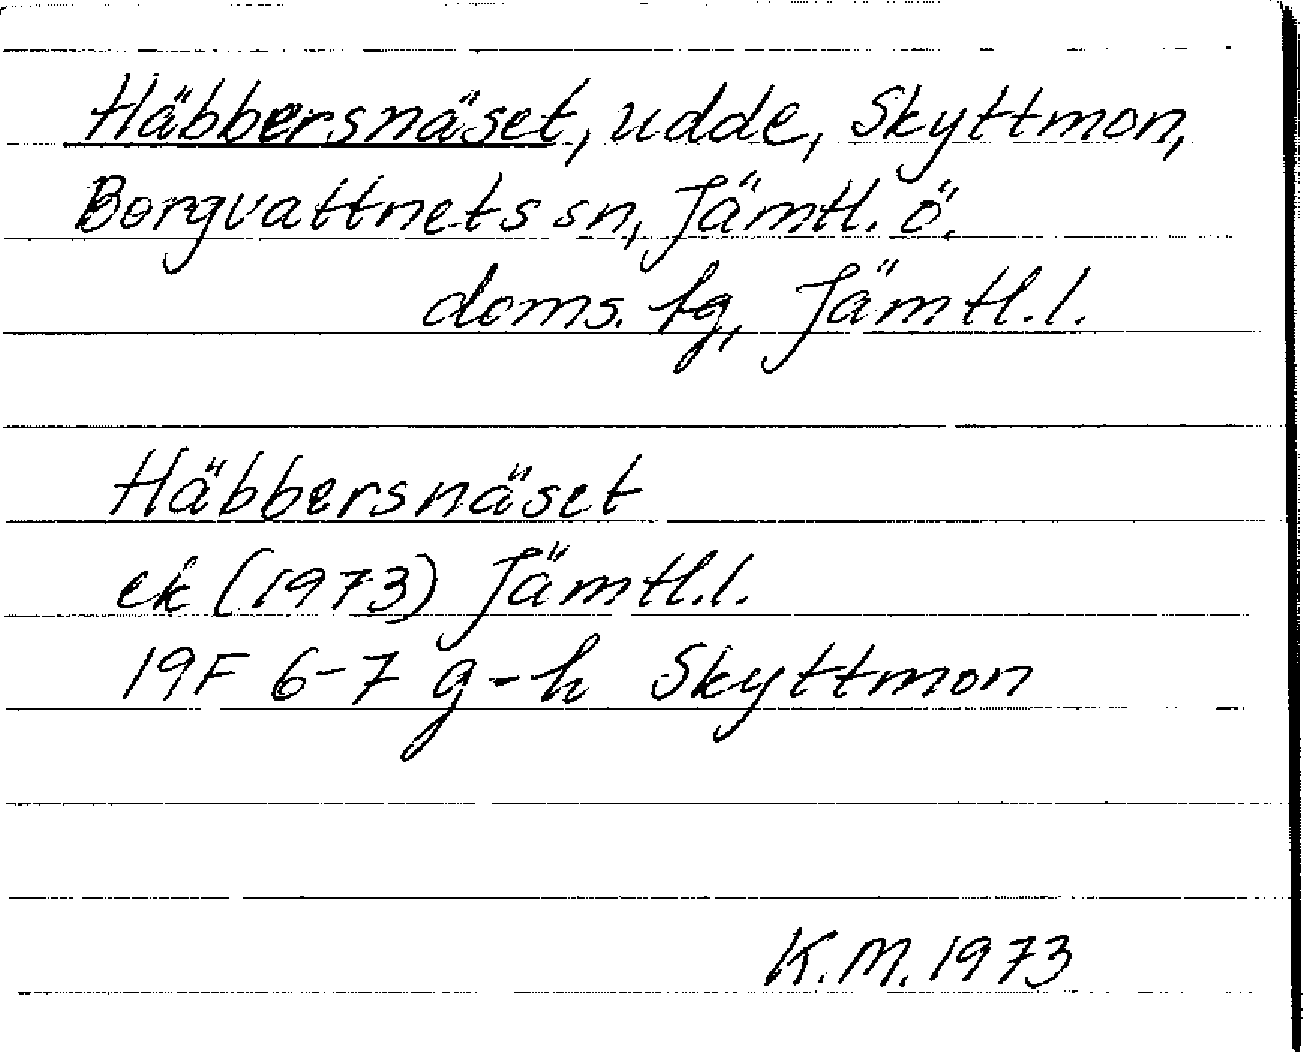 Häbbersnäset, udde, Skyttmon,
Borgvattnets sn, Jämtl. ö.
doms. tg, Jämtl. l.
Häbbersnäset
ek (1973) Jämtl.l.
19F 6-7 g-h Skyttmon
K.M. 1973